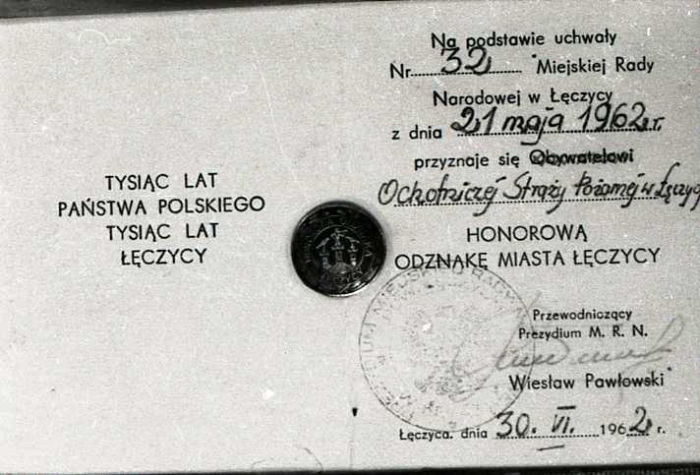 TYSIĄC LAT
PAŃSTWA POLSKIEGO
TYSIĄC LAT
ŁĘCZYCY
Na podstawie uchwały
Nr. 32 Miejskiej Rady
Narodowej w Łęczycy
z dnia 21 maja 1962 r.
przyznaje się Obywatelowi
Ochotniczej Straży Pożarnej w Łęczycy
HONOROWĄ
ODZNAKĘ MIASTA ŁĘCZYCY
Przewodniczący
Prezydium M. R. N.
Wiesław Pawłowski
Łęczyca, dnia 30. VI. 1962 r.